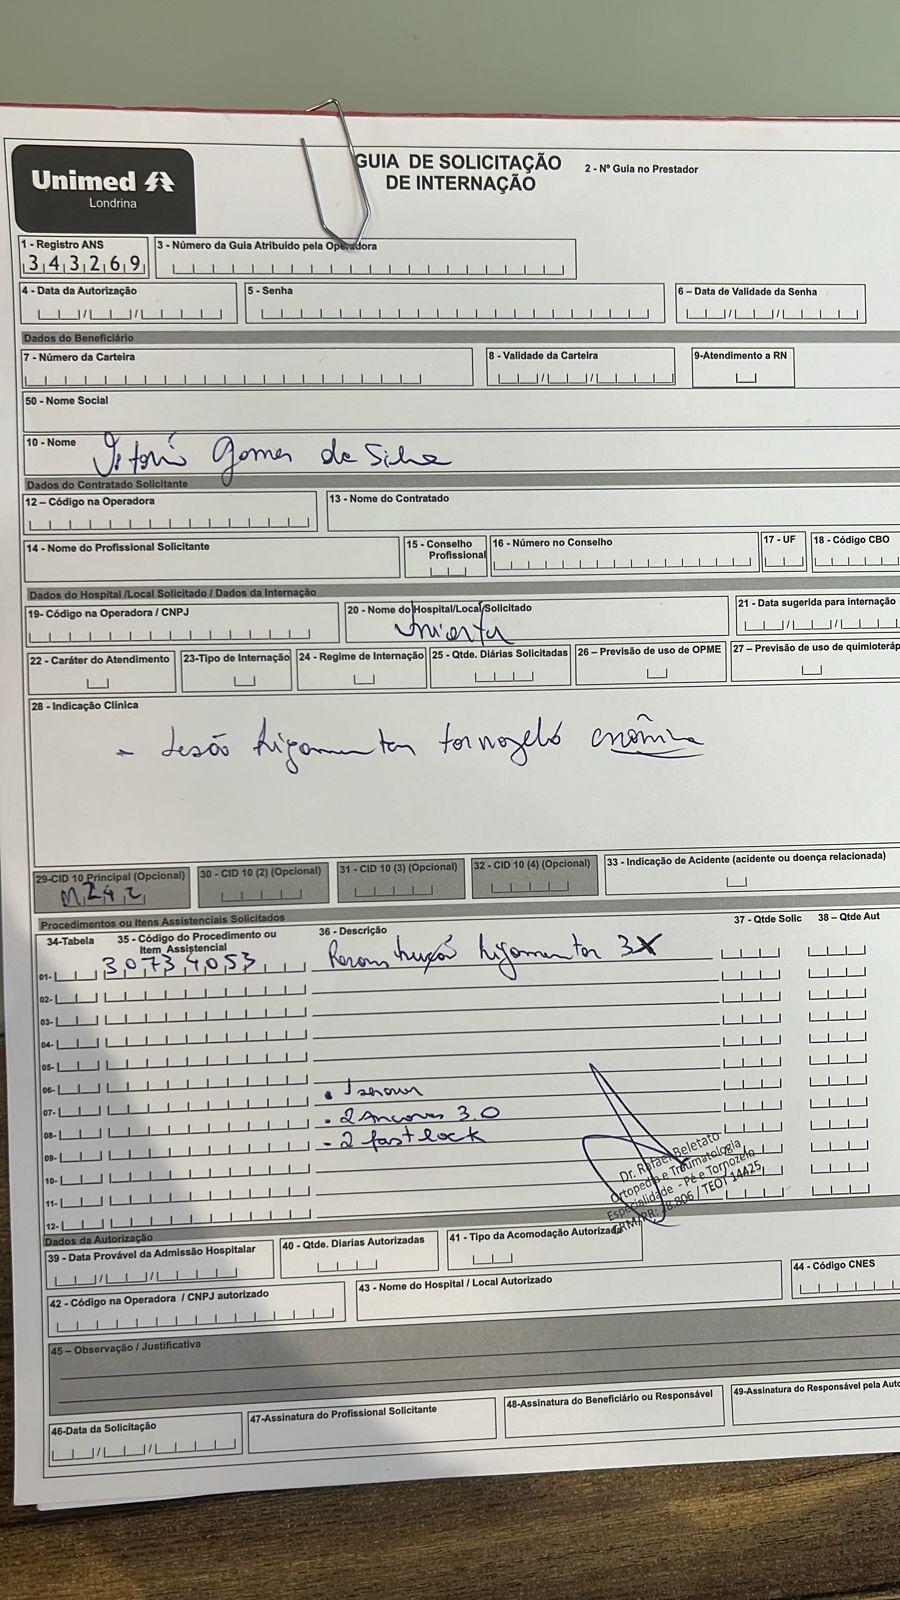 Unimed
Londrina
GUIA DE SOLICITAÇÃO
DE INTERNAÇÃO
2 - Nº Guia no Prestador
1 - Registro ANS
343269
3 - Número da Guia Atribuido pela Operadora
4 - Data da Autorização
5 - Senha
6 – Data de Validade da Senha
Dados do Beneficiário
7 - Número da Carteira
8 - Validade da Carteira
9-Atendimento a RN
50 - Nome Social
10 - Nome
Gomes da Silva
Dados do Contratado Solicitante
12 – Código na Operadora
13 - Nome do Contratado
14 - Nome do Profissional Solicitante
15 - Conselho Profissional
16 - Número no Conselho
17 - UF
18 - Código CBO
Dados do Hospital /Local Solicitado / Dados da Internação
19- Código na Operadora / CNPJ
20 - Nome do Hospital/Local/Solicitado
21 - Data sugerida para internação
22 - Caráter do Atendimento
23-Tipo de Internação
24 - Regime de Internação
25 - Qtde. Diárias Solicitadas
26 – Previsão de uso de OPME
27 – Previsão de uso de quimioteráp
28 - Indicação Clínica
- Lesão ligamentar tornozelo crônica
29-CID 10 Principal (Opcional)
M242
30 - CID 10 (2) (Opcional)
31 - CID 10 (3) (Opcional)
32 - CID 10 (4) (Opcional)
33 - Indicação de Acidente (acidente ou doença relacionada)
Procedimentos ou Itens Assistenciais Solicitados
34-Tabela
35 - Código do Procedimento ou Item Assistencial
36 - Descrição
37 - Qtde Solic
38 – Qtde Aut
01- 30734053 Reconstrução ligamentar 3X
02-
03-
04-
05-
06-
07- 
08- . 2 Ancoras 3.0
09- - 2 fastlock
10-
11-
12-
Dr. Rafael Beletato
Ortopedia e Traumatologia
Especialidade - Pé e Tornozelo
CRM/PR: 28.806 / TEOT 14425
Dados da Autorização
39 - Data Provável da Admissão Hospitalar
40 - Qtde. Diarias Autorizadas
41 - Tipo da Acomodação Autorizada
42 - Código na Operadora / CNPJ autorizado
43 - Nome do Hospital / Local Autorizado
44 - Código CNES
45 – Observação / Justificativa
46-Data da Solicitação
47-Assinatura do Profissional Solicitante
48-Assinatura do Beneficiário ou Responsável
49-Assinatura do Responsável pela Auto